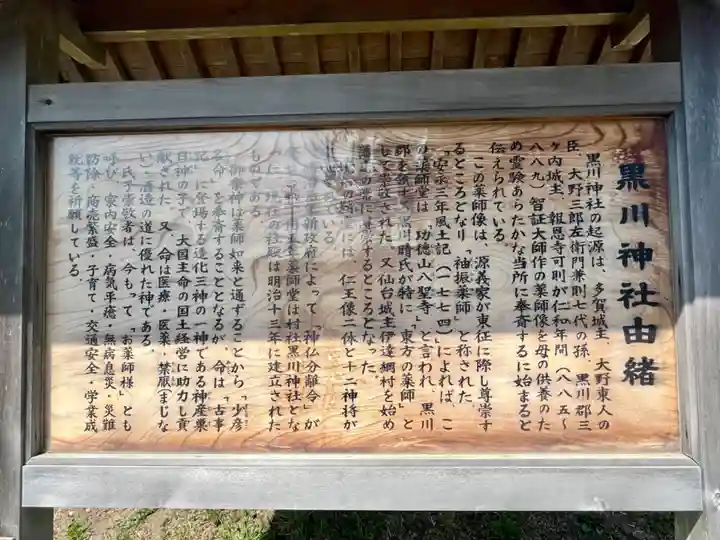 黒川神社由緒
黒川神社の起源は、多賀城主、大野東人の
臣、大野三郎左衛門兼則七代の孫、黒川郡三
ケ内城主、報恩寺可則が仁和年間（八八五〜
八八九）智証大師作の薬師像を母の供養のた
め霊験あらたかな当所に奉斎するに始まると
伝えられている
この薬師像は、源義家が東征に際し尊崇す
るところとなり「袖振薬師」と称された。
「安永三年風土記（一七七四）によれば、こ
の薬師堂は、功徳山八聖寺」と言われ、黒川
郡を領する黒川晴氏が特に「東方の薬師」と
して尊崇された。又仙台城主伊達綱村を始め
藩主の常に尊崇するところとなった。
には、仁王像二体と十二神将が
いる。
新政府によって「神仏分離令」が
薬師堂は村社黒川神社とな
現在の社殿は明治十三年に建立された
ものである。
御祭神は薬師如来と通ずることから「少彦
名命」を奉斎することとなるが、命は「古事
記」に登場する造化三神の一神である神産巣
日神の子で、大国主命の国土経営に助力し貢
献された。又、命は医療・医薬・禁厭（まじな
い）・酒造の道に優れた神である。
氏子崇敬者は、今もって「お薬師様」とも
呼び、家内安全・病気平癒・無病息災・災難
防除・商売繁盛・子育て・交通安全・学業成
就等を祈願している。